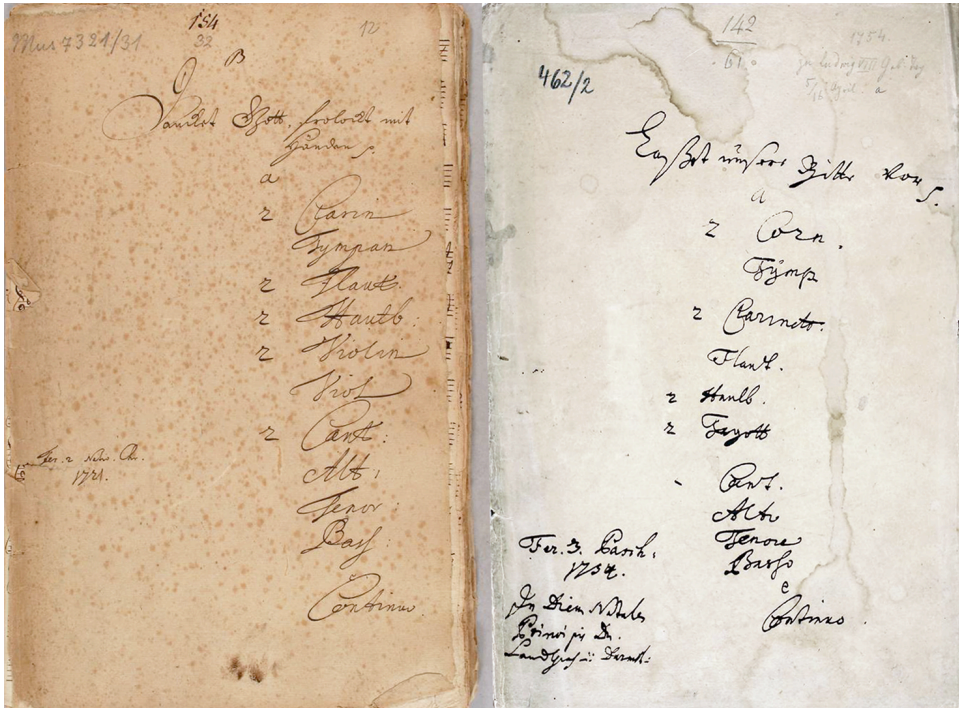 Mus 7321/31
154
32
12
B
Danket Gott, frolockt mit
Händen p.
a
2 Clarin
Tympan
2 Flaut.
2 Hautb.
2 Violin
Viol
2 Cant:
Alt:
Tenor:
Bass:
Continuo.
Fer. 2 Nativ. Chr.
1721.
142
61.
1754.
462/2
Lasset unsere Bitte vor
a
2 Corn.
Tymp
2 Clarinett.
Flaut.
2 Hautb.
2 Fagott
Cant.
Alto
Tenore
Basso
e
Continuo.
Fer. 3. Pasch:
1754.
In Diem Natalem